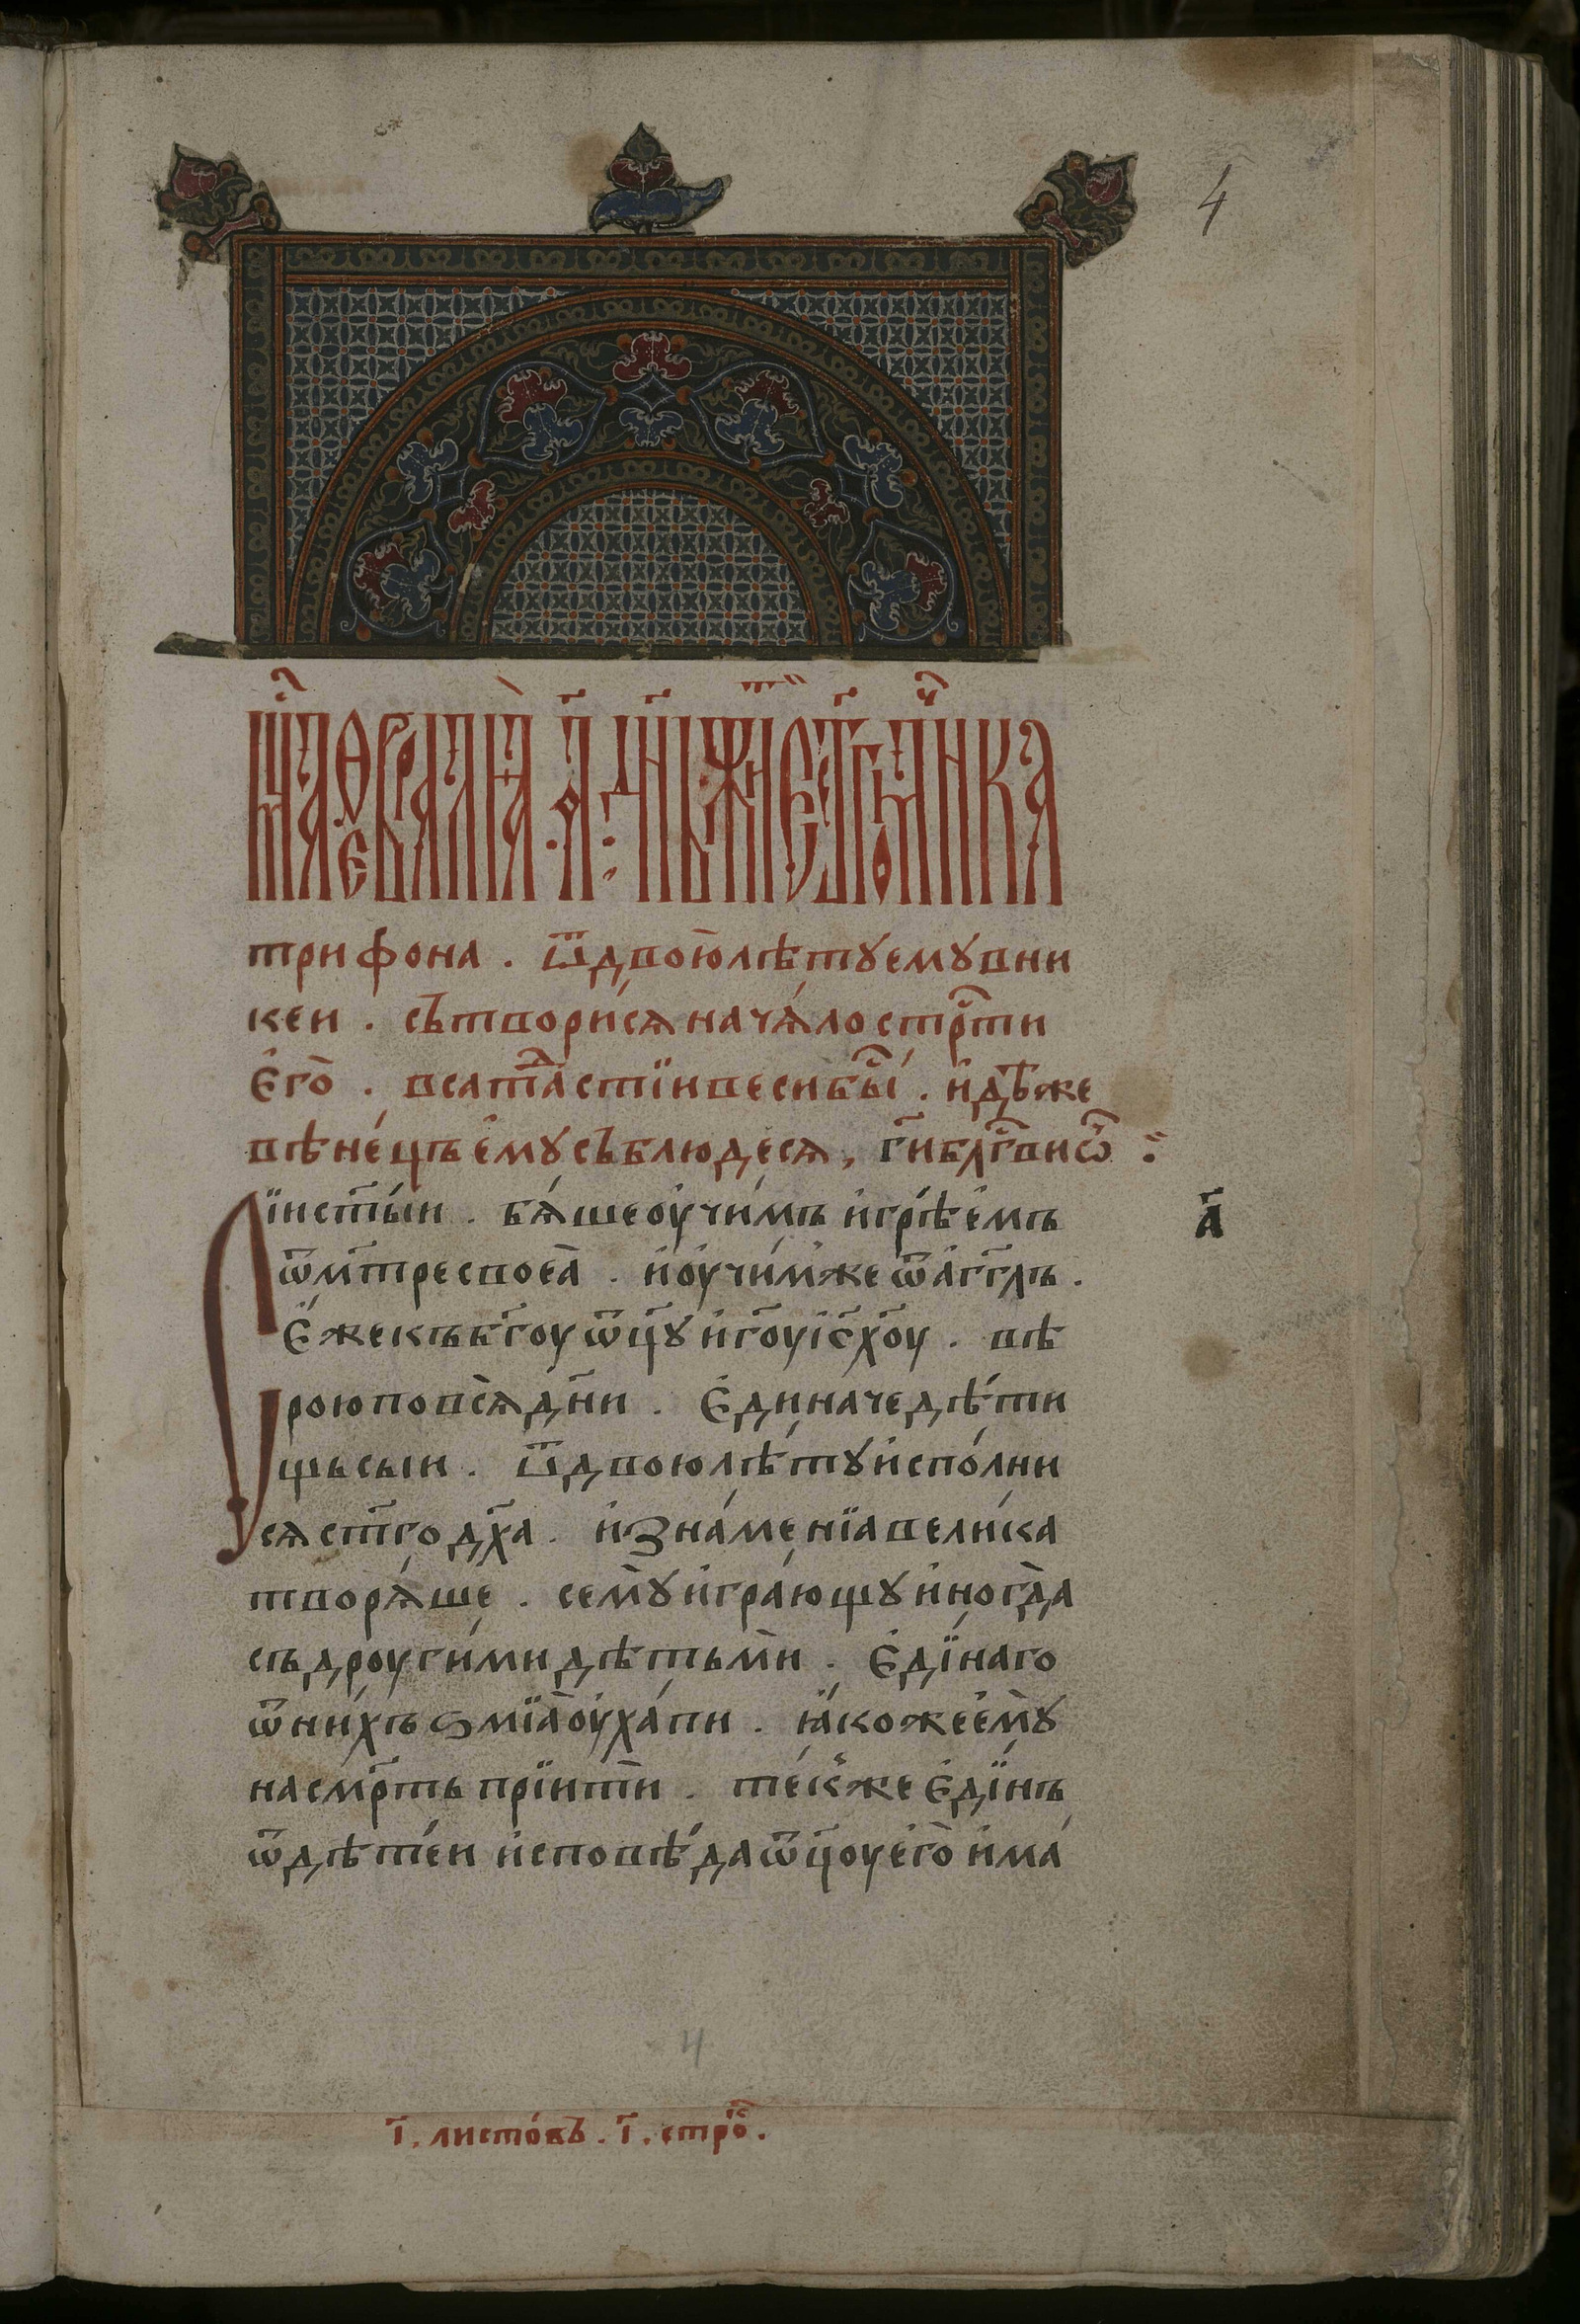 4
мцⷭ҇а феврарїа҆ . а҃ . дн҃ь . жи́тїе ст҃го мч҃нка
трифона . ѿ двою̀ лѣтꙋ ємꙋ в ни
кеи . съ̑твори́сѧ нача́ло стрⷭ҇ти
є҆го̀ . в сатⷣа́стїи веси бы́ⷭ . и҆дѣ́же
вѣне́ць є҆мꙋ съ̑блюдесѧ , гⷭ҇и блⷭ҇ви ѿⷱ҇ :
Сїи ст҃ы́и . бѧ́ше оу҆чи́мь и҆грⷭ҇ѣ є҆мь
ѿ мт҃ре своеа̀ . и҆ оу҆чи́м же ѿ а҆́гг҃ль .
Є҆́же къ бг҃оу ѿц҃ꙋ и҆ гⷭ҇оу і҆с х҃оу . вѣ
рою по всѧ̀ дн҃и . Є҆ди́наче дѣ́ти
щь сыи . ѿ двою лѣ́тꙋ и҆спо́лни
сѧ ст҃го дх҃а . и҆ ꙁна́менїа вели́ка
творѧ́ше . семꙋ̀ и҆гра́ющꙋ и҆ногда̀
съ дроуги́ми дѣтьмѝ . Є҆ді́наго
ѿ ни́хъ ѕмїа̀ оу҆ха́пи . ꙗ҆́коже є҆мꙋ̀
на смрⷭ҇ть прїитѝ . те́к же є҆ді́нъ
ѿ дѣте́и и҆сповѣ́да ѿц҃оу є҆го̀ и҆ ма́
а҃
4
і҃ . листо́въ . і҃ . стро́ⷦ .